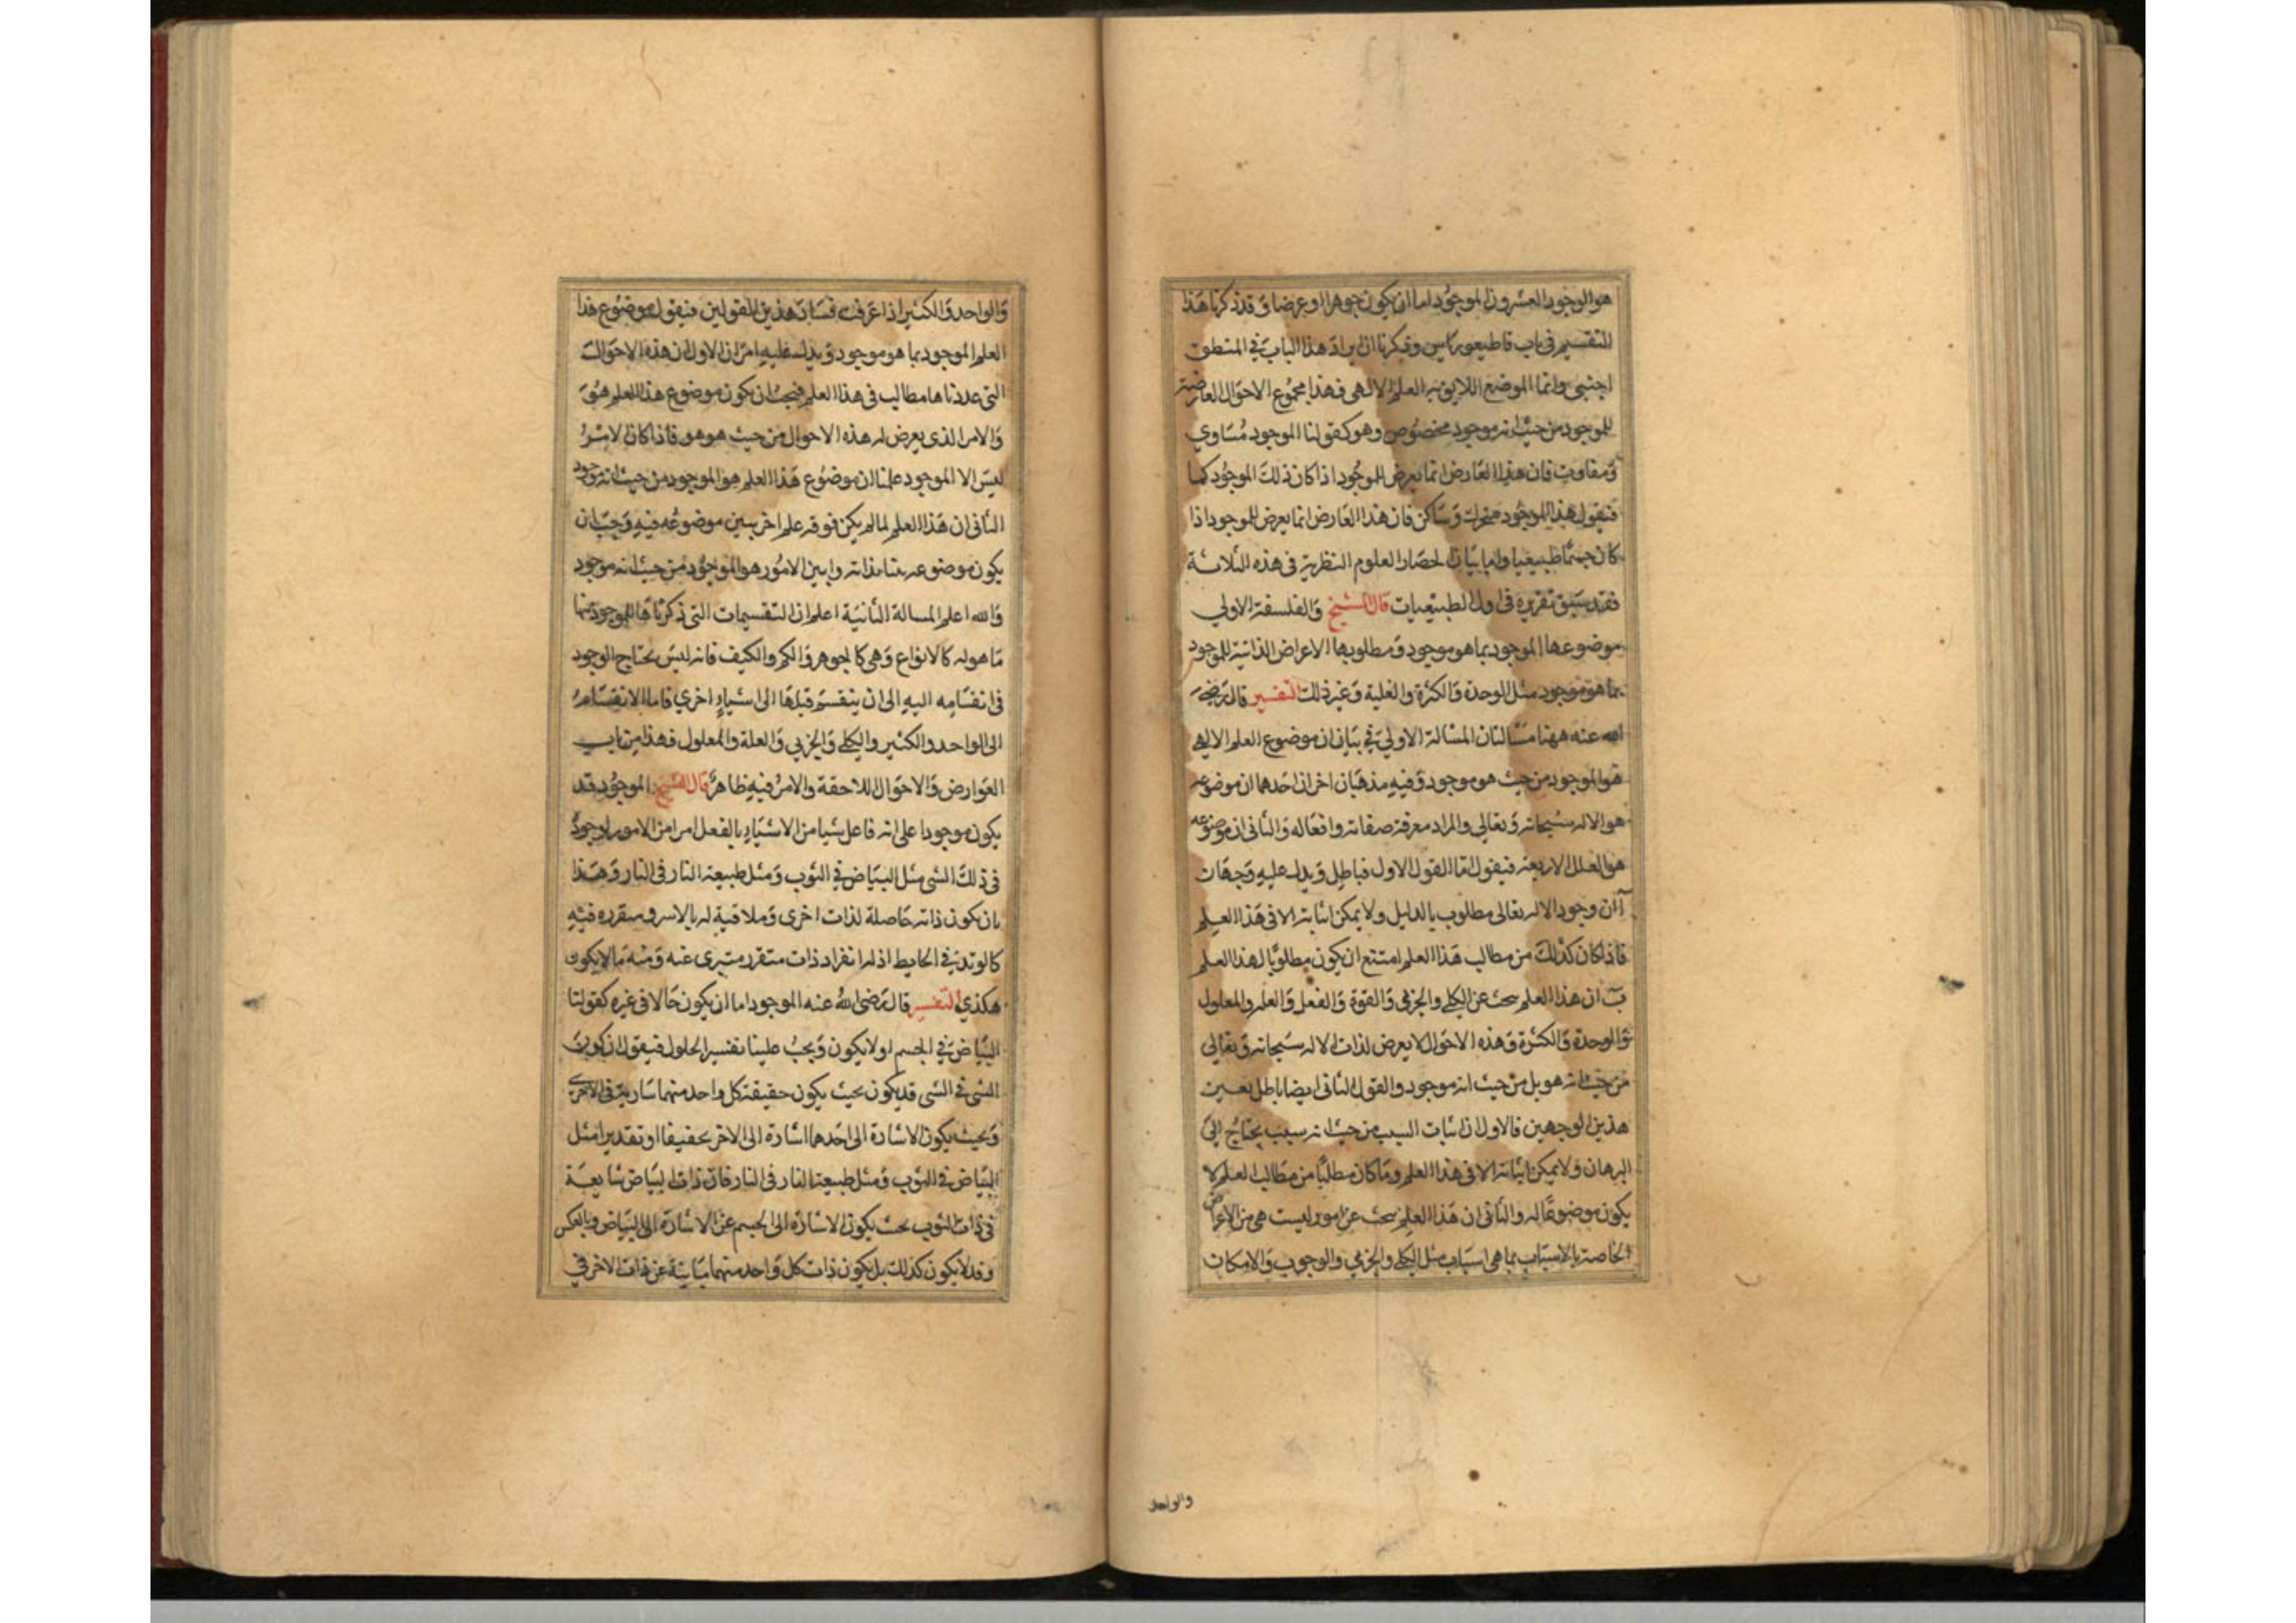 هو الوجود العشرون الموجود اما ان يكون جوهرا او عرضا وقد ذكرنا هذا
التقسيم في باب قاطيغورياس وذكرنا ان ايراد هذا الباب في المنطق
اجنبي وانما الموضع اللايق به العلم الالهي فهذا مجموع الاحوال العارضة
للموجود من حيث انه موجود مخصوص وهو كقولنا الموجود مساوي
ومفاوت فان هذا العارض انما يعرض للموجود اذا كان ذلك الموجود كما
فنقول هذا الموجود متحرك وساكن فان هذا العارض انما يعرض للموجود اذا
كان جسما طبيعيا واما بيان انحصار العلوم النظرية في هذه الثلاثة
فقد سبق تقريره في اول الطبيعيات قال الشيخ والفلسفة الاولي
موضوعها الموجود بما هو موجود ومطلوبها الاعراض الذاتية للموجود
بما هو موجود مثل الوحدة والكثرة والعلية وغير ذلك التفسير قال رضي
الله عنه ههنا مسالتان المسالة الاولي في بيان ان موضوع العلم الالهي
هو الموجود من حيث هو موجود وفيه مذهبان اخران احدهما ان موضوعه
هو الاله سبحانه وتعالي والمراد معرفة صفاته وافعاله والثاني ان موضوعه
هو العلل الاربعة فنقول اما القول الاول فباطل ويدل عليه وجهان
آ ان وجود الاله تعالى مطلوب بالدليل ولا يمكن اثباته الا في هذا العلم
فاذا كان كذلك من مطالب هذا العلم امتنع ان يكون مطلوبا لهذا العلم
ب ان هذا العلم يبحث عن الكلي والجزئي والقوة والفعل والعلة والمعلول
والوحدة والكثرة وهذه الاحوال لا يعرض لذات الاله سبحانه وتعالى
من حيث انه هو بل من حيث انه موجود والقول الثاني ايضا باطل بعين
هذين الوجهين فالاول ان اثبات السبب من حيث انه سبب يحتاج الي
البرهان ولا يمكن اثباته الا في هذا العلم وما كان مطلبا من مطالب العلم لا
يكون موضوعا له والثاني ان هذا العلم يبحث عن امور ليست هي من الاعراض
الخاصة بالاسباب بما هي اسباب مثل الكلي والجزئي والوجوب والامكان
والواحد
والواحد والكثير اذا عرفت فساد هذين القولين فنقول موضوع هذا
العلم الموجود بما هو موجود ويدل عليه امران الاول ان هذه الاحوال
التي عددناها مطالب في هذا العلم فيجب ان يكون موضوع هذا العلم هو
والامر الذي يعرض له هذه الاحوال من حيث هو هو فاذا كان لامر
ليس الا الموجود علمنا ان موضوع هذا العلم هو الموجود من حيث انه موجود
الثاني ان هذا العلم لما لم يكن فوقه علم اخر يبين موضوعه فيه وجب ان
يكون موضوعه بينا بذاته وابين الامور هو الموجود من حيث انه موجود
والله اعلم المسالة الثانية اعلم ان التقسيمات التي ذكرناها للموجود منها
ما هو له كالانواع وهي كالجوهر والكم والكيف فانه ليس يحتاج الوجود
في انقسامه اليه الى ان ينقسم قبلها الى اشياء اخري فاما الانقسام
الى الواحد والكثير والكلي والجزئي والعلة والمعلول فهذا من باب
العوارض والاحوال اللاحقة والامر فيه ظاهر قال الشيخ الموجود قد
يكون موجودا على انه فاعل شيا من الاشياء بالفعل امرا من الامور بوجوده
في ذلك الشي مثل البياض في الثوب ومثل طبيعة النار في النار وهذا
بان يكون ذاته حاصلة لذات اخرى وملاقية له بالاسر ومتقرره فيه
كالوتد في الحايط اذ له انفراد ذات متقرر متبرى عنه ومنه ما لا يكون
هكذي التفسير قال رضى الله عنه الموجود اما ان يكون حالا في غيره كقولنا
البياض في الجسم او لا يكون ويجب علينا تفسير الحلول فنقول ان كون
الشي في الشي قد يكون بحيث يكون حقيقة كل واحد منهما سارية في الاخرى
وبحيث يكون الاشارة الى احدهما اشارة الى الاخر تحقيقا او تقديرا مثل
البياض في الثوب ومثل طبيعة النار في النار فان ذات البياض شايعة
في ذات الثوب بحيث يكون الاشارة الى الجسم عن الاشارة الى البياض وبالعكس
وقد لا يكون كذلك بل يكون ذات كل واحد منهما مباينة عن ذات الاخر في